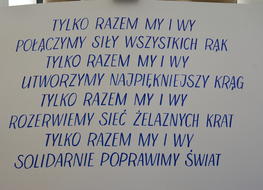 TYLKO RAZEM MY I WY
POŁĄCZYMY SIŁY WSZYSTKICH RĄK
TYLKO RAZEM MY I WY
UTWORZYMY NAJPIĘKNIEJSZY KRĄG
TYLKO RAZEM MY I WY
ROZERWIEMY SIEĆ ŻELAZNYCH KRAT
TYLKO RAZEM MY I WY
SOLIDARNIE POPRAWIMY ŚWIAT